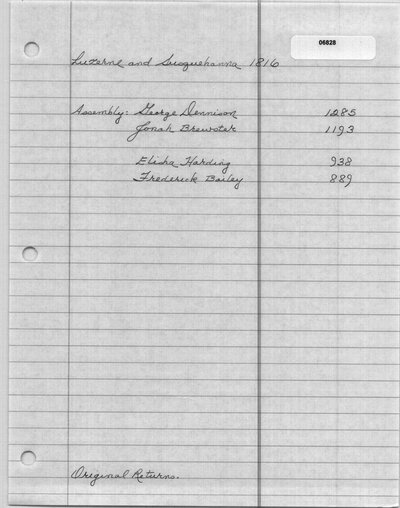 06828
Luzerne and Susquehanna 1816
Assembly: George Dennison 1285
Jonah Brewster 1193
Elisha Harding 938
Frederick Bailey 889
Original Returns.